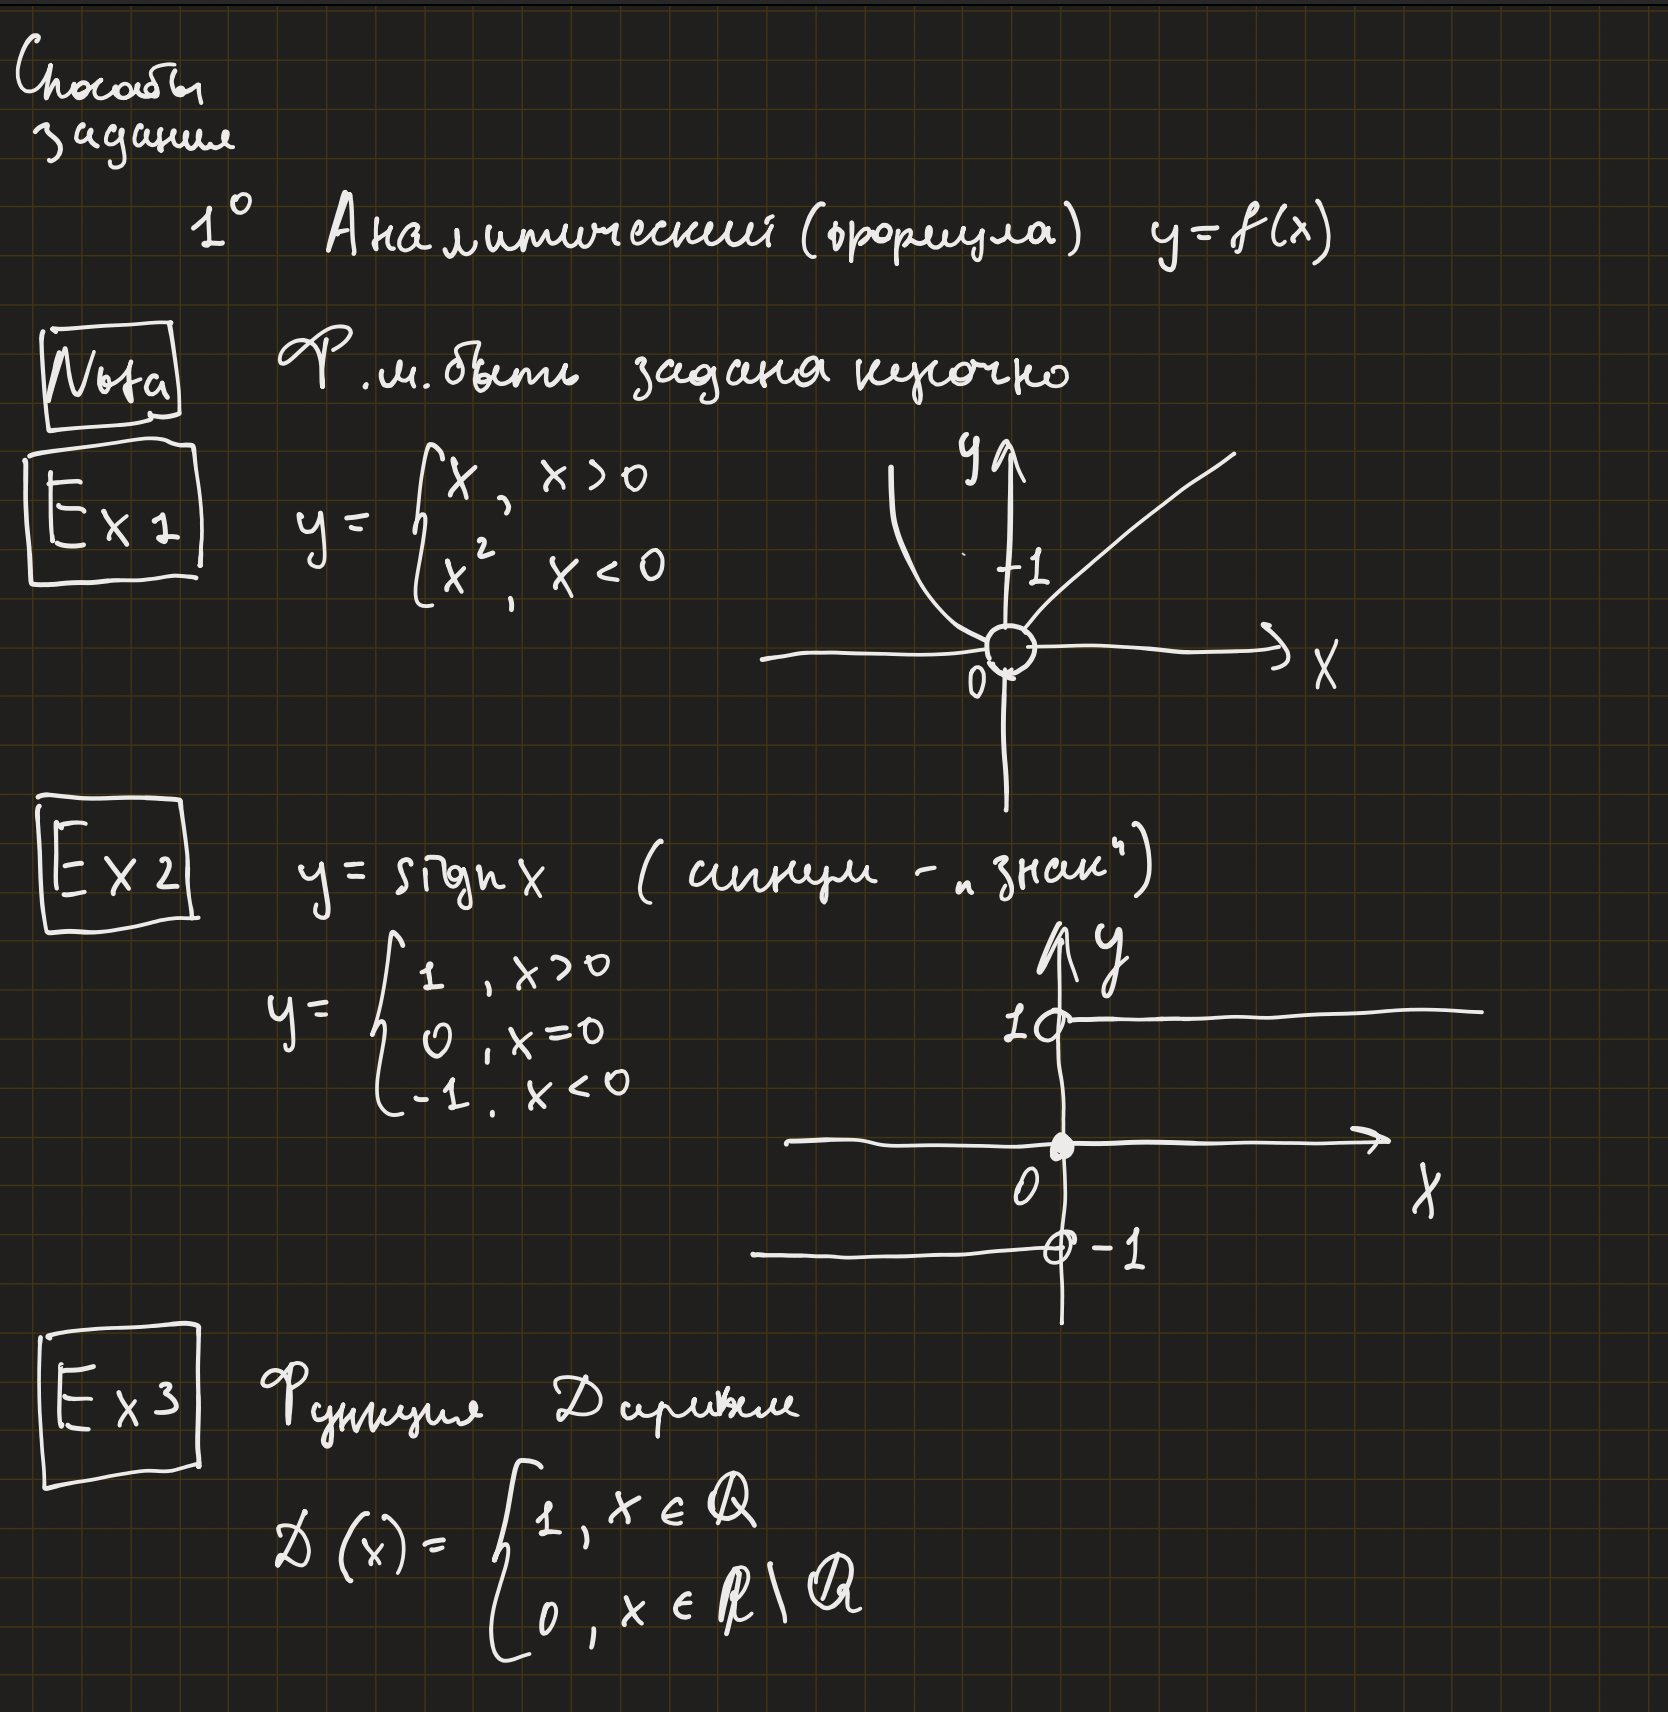 Способы
задания
1° Аналитический (формула) y = f(x)
Nota Ф. м. быть задана кусочно
Ex 1 y = { x, x > 0
x², x < 0
y
1
0
x
Ex 2 y = sign x (сигнум - „знак“)
y = { 1, x > 0
0, x = 0
-1, x < 0
y
1
0
x
-1
Ex 3 Функция Дирихле
D(x) = { 1, x ∈ ℚ
0, x ∈ ℝ \ ℚ